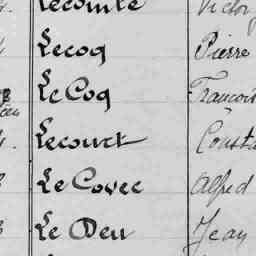 Lecomte Victor
Lecoq Pierre
Le Coq François
Lecourt Consta
Le Covec Alfred
Le Deu Jean